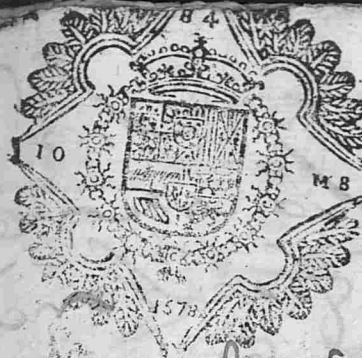 84
10 M8
1578